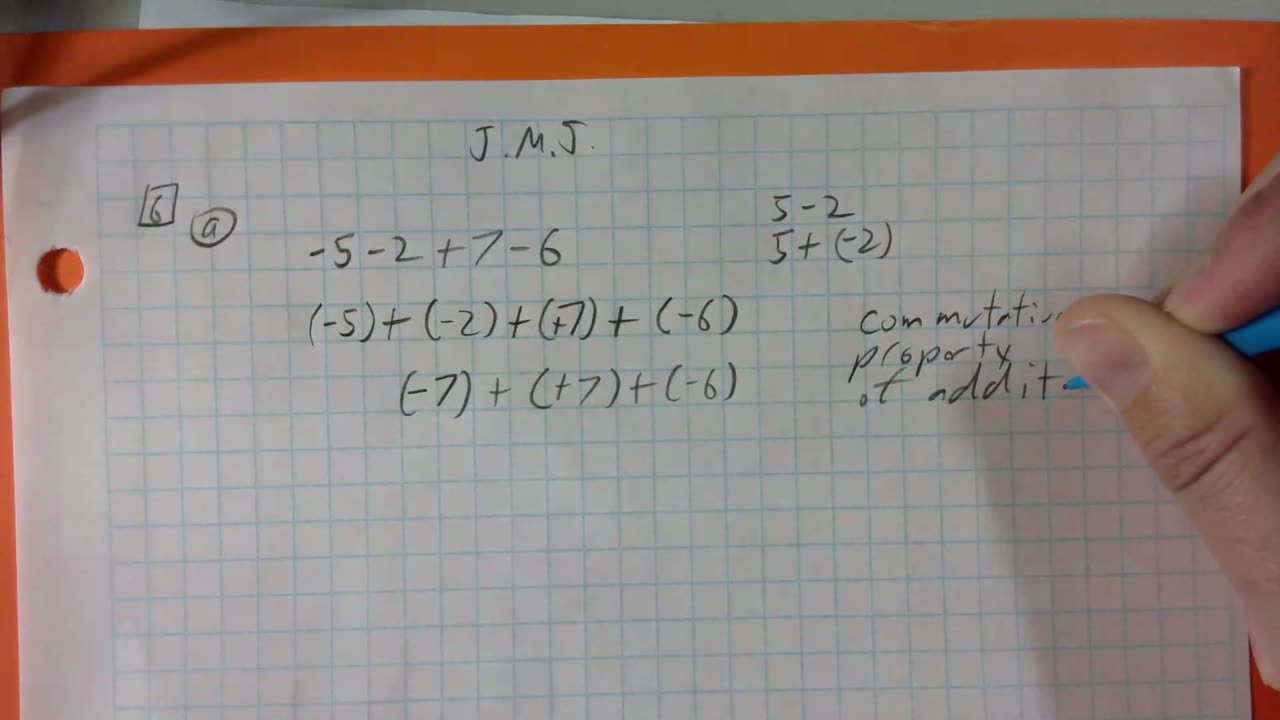 J.M.J.
6 a
-5-2+7-6
5-2
5+(-2)
(-5)+(-2)+(+7)+(-6)
(-7)+(+7)+(-6)
property
of